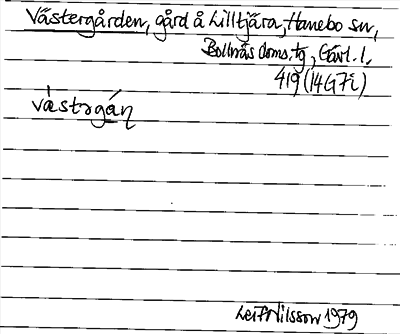 Västergården, gård å Lilltjära, Hanebo sn,
Bollnäs doms.tg, Gävl. l.
419 (14G7i)
västrgáṇ
Leif Nilsson 1979